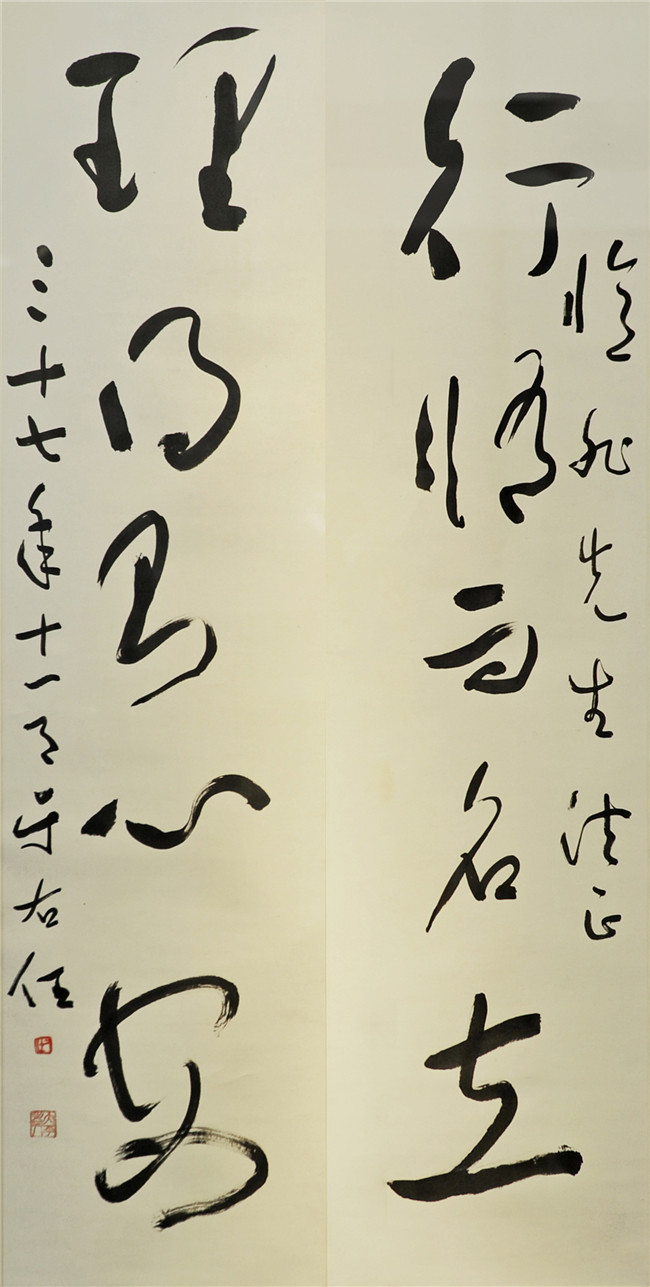 先生法正
行脩而名立
理得則心安
三十七年十一月于右任